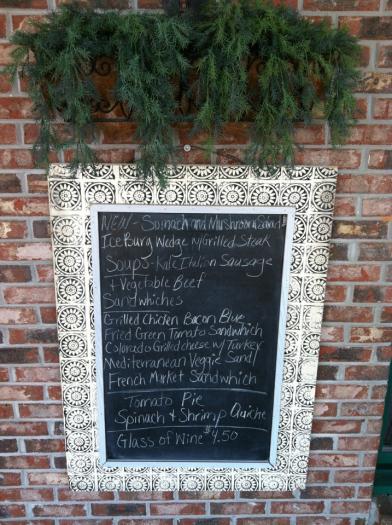 NEW - Spinach and Mushroom Salad
Ice Burg Wedge w/Grilled Steak
Soups - Kale Italian Sausage
+ Vegetable Beef
Sandwhiches
Grilled Chicken Bacon Blue
Fried Green Tomato Sandwhich
Colorado Grilled cheese w/ Turkey
Mediterranean Veggie Sand/
French Market Sandwhich
Tomato Pie
Spinach + Shrimp Quiche
Glass of Wine $4.50